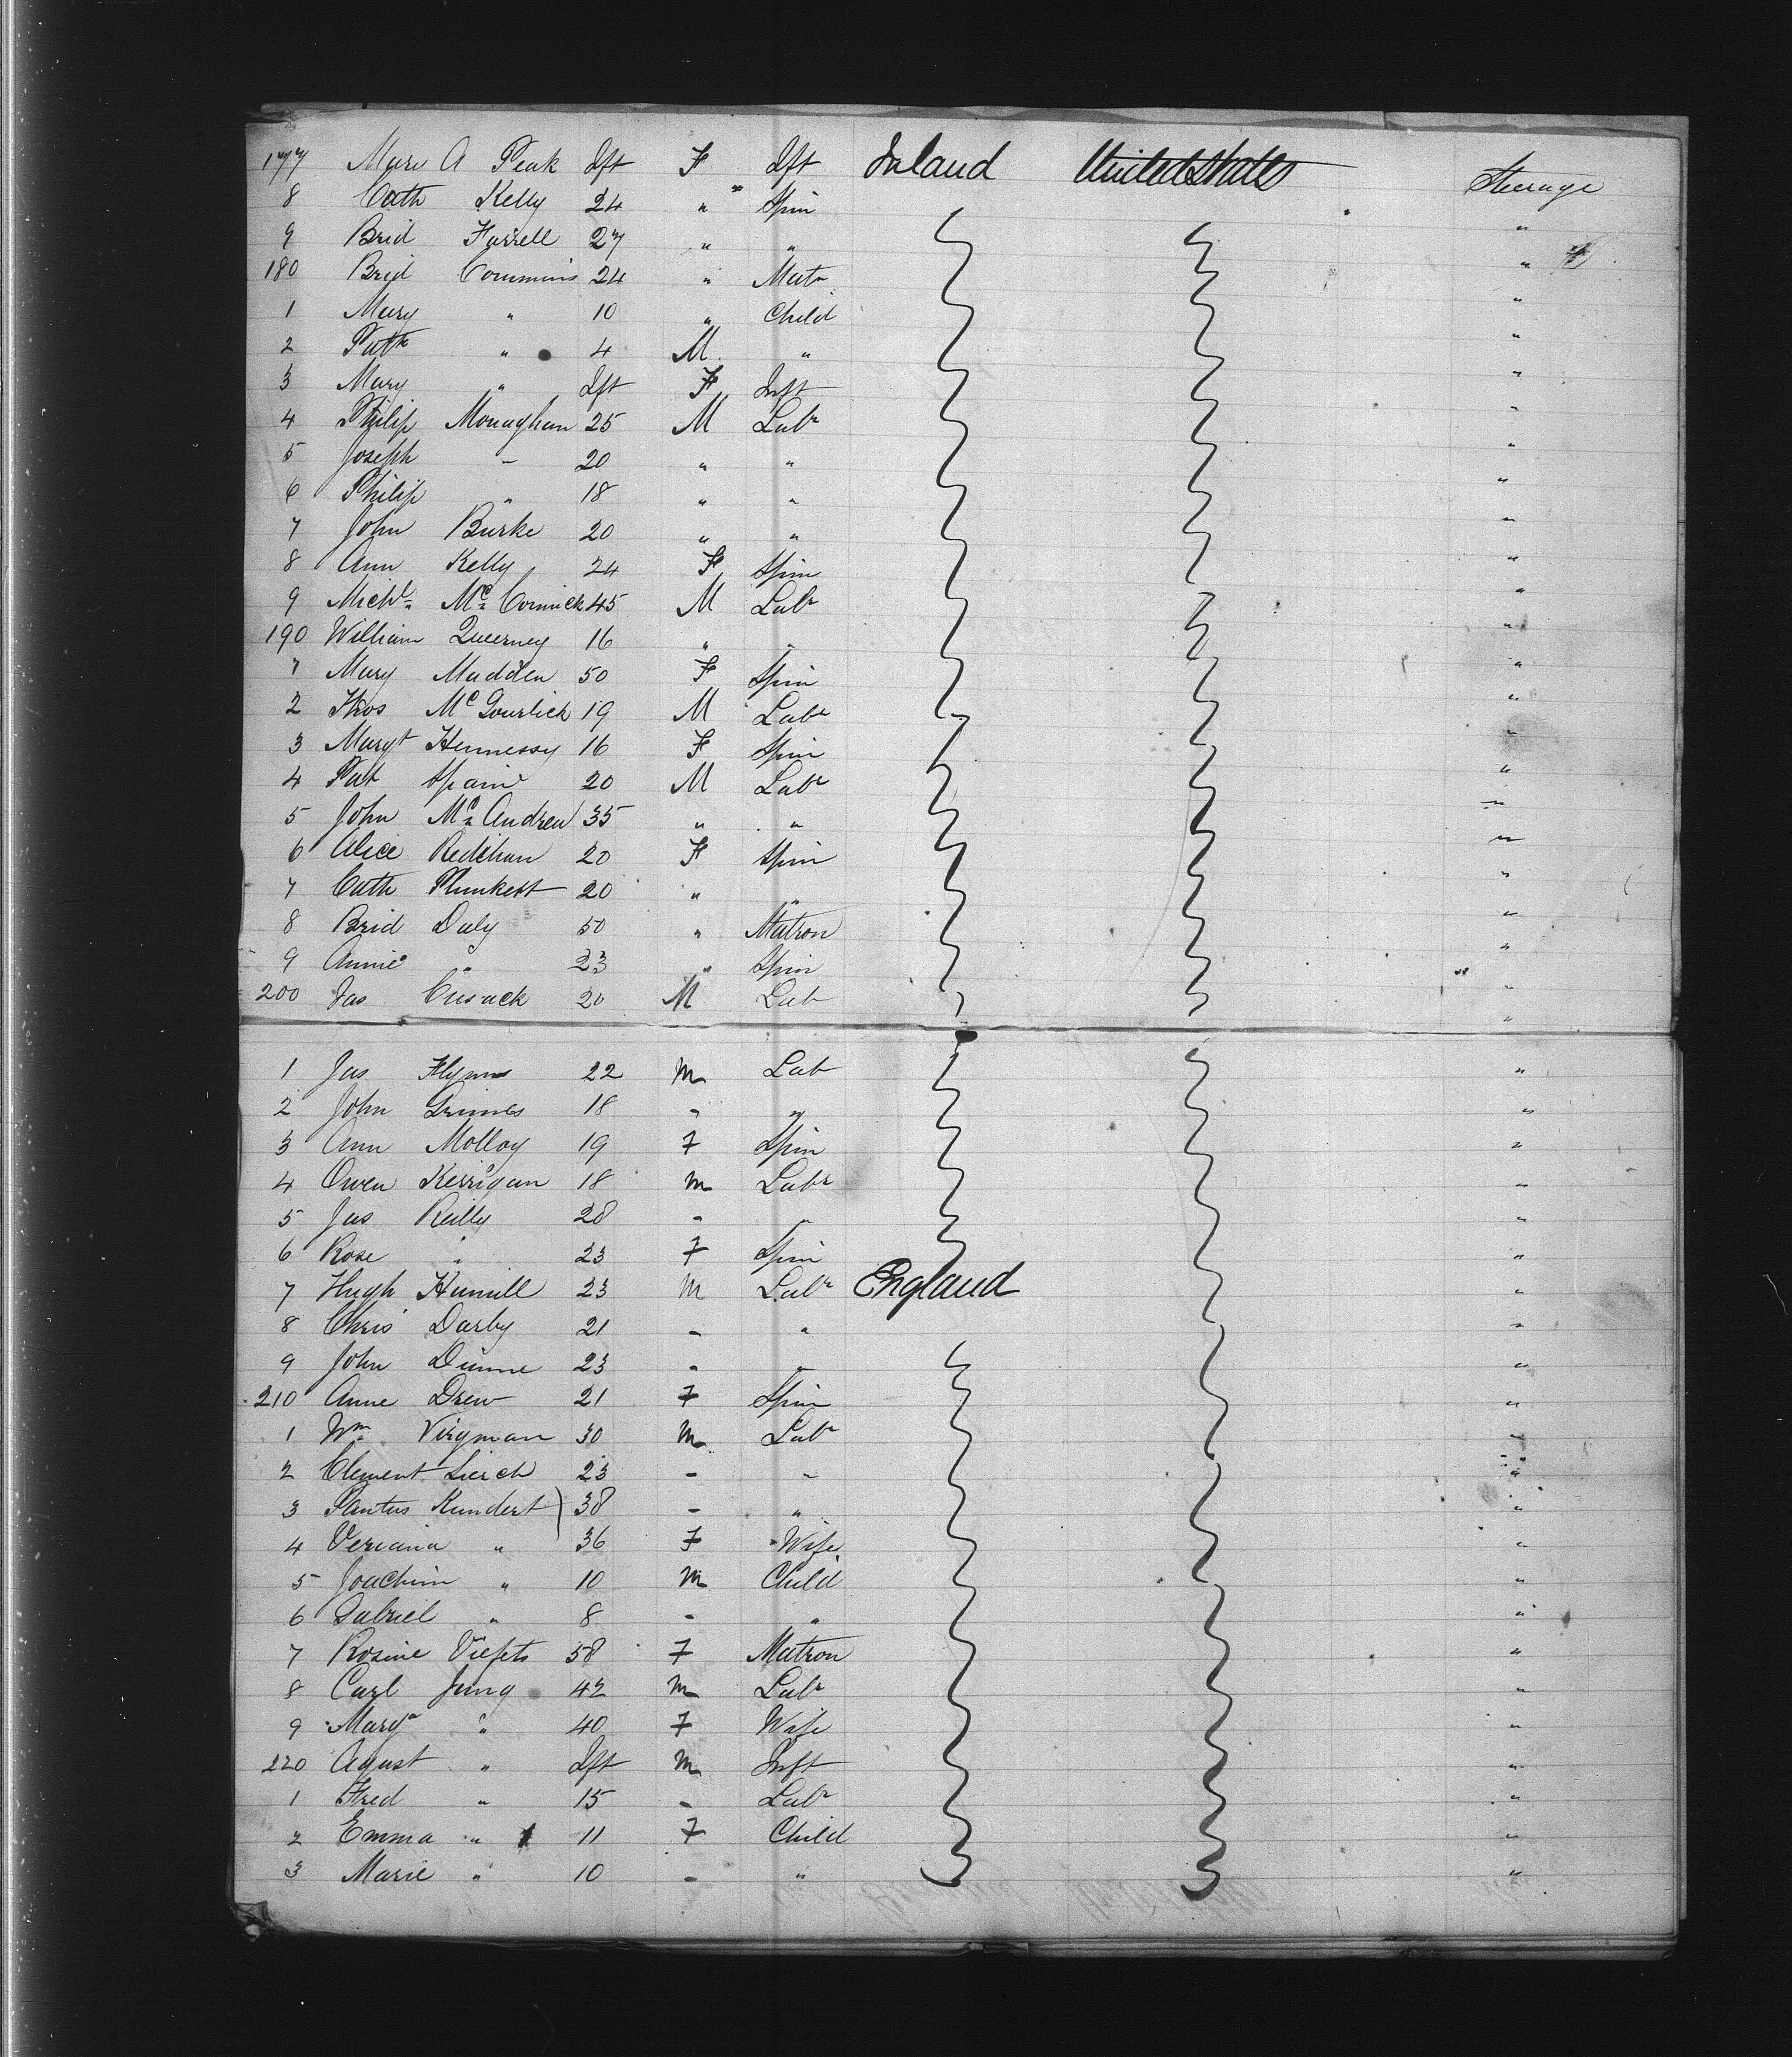 177 Mare A Peak Ift F Ift Ireland United States Steerage
8 Cath Kelly 24 " Spin "
9 Brid Farrell 27 " " "
180 Brid Commins 24 " Matn "
1 Mary " 10 " Child "
2 Patk " 4 M " "
3 Mary " Ift F Inft "
4 Philip Monaghan 25 M Labr "
5 Joseph " 20 " " "
6 Philip " 18 " " "
7 John Burke 20 " " "
8 Ann Kelly 24 F Spin "
9 Michl Mc Cormick 45 M Labr "
190 William 16 " " "
1 Mary Madden 50 F Spin "
2 Thos Mc Gourlick 19 M Labr "
3 Margt Hennessy 16 F Spin "
4 Pat Spain 20 M Labr "
5 John Mc Andrew 35 " " "
6 Alice Redehan 20 F Spin "
7 Cath Plunkett 20 " " "
8 Brid Daly 50 " Matron "
9 Annie " 23 " Spin "
200 Jas Cusack 20 M Lab "
1 Jas Flynn 22 M Lab "
2 John Grimes 18 " " "
3 Ann Molloy 19 F Spin "
4 Owen Kerrigan 18 M Labr "
5 Jas Reilly 28 " " "
6 Rose " 23 F Spin "
7 Hugh Hamill 23 M Labr England "
8 Chris Darby 21 " " "
9 John Dunne 23 " " "
210 Anne Drew 21 F Spin "
1 Wm Virgman 30 M Labr "
2 Clement Lierch 23 " " "
3 Pantus Kundert 38 " " "
4 Veriana " 36 F Wife "
5 Joachim " 10 M Child "
6 Gabriel " 8 " " "
7 Rosine 58 F Matron "
8 Carl Jung 42 M Labr "
9 Marya " 40 F Wife "
220 Agust " Ift M Inft "
1 Fred " 15 " Labr "
2 Emma " 11 F Child "
3 Marie " 10 " " "